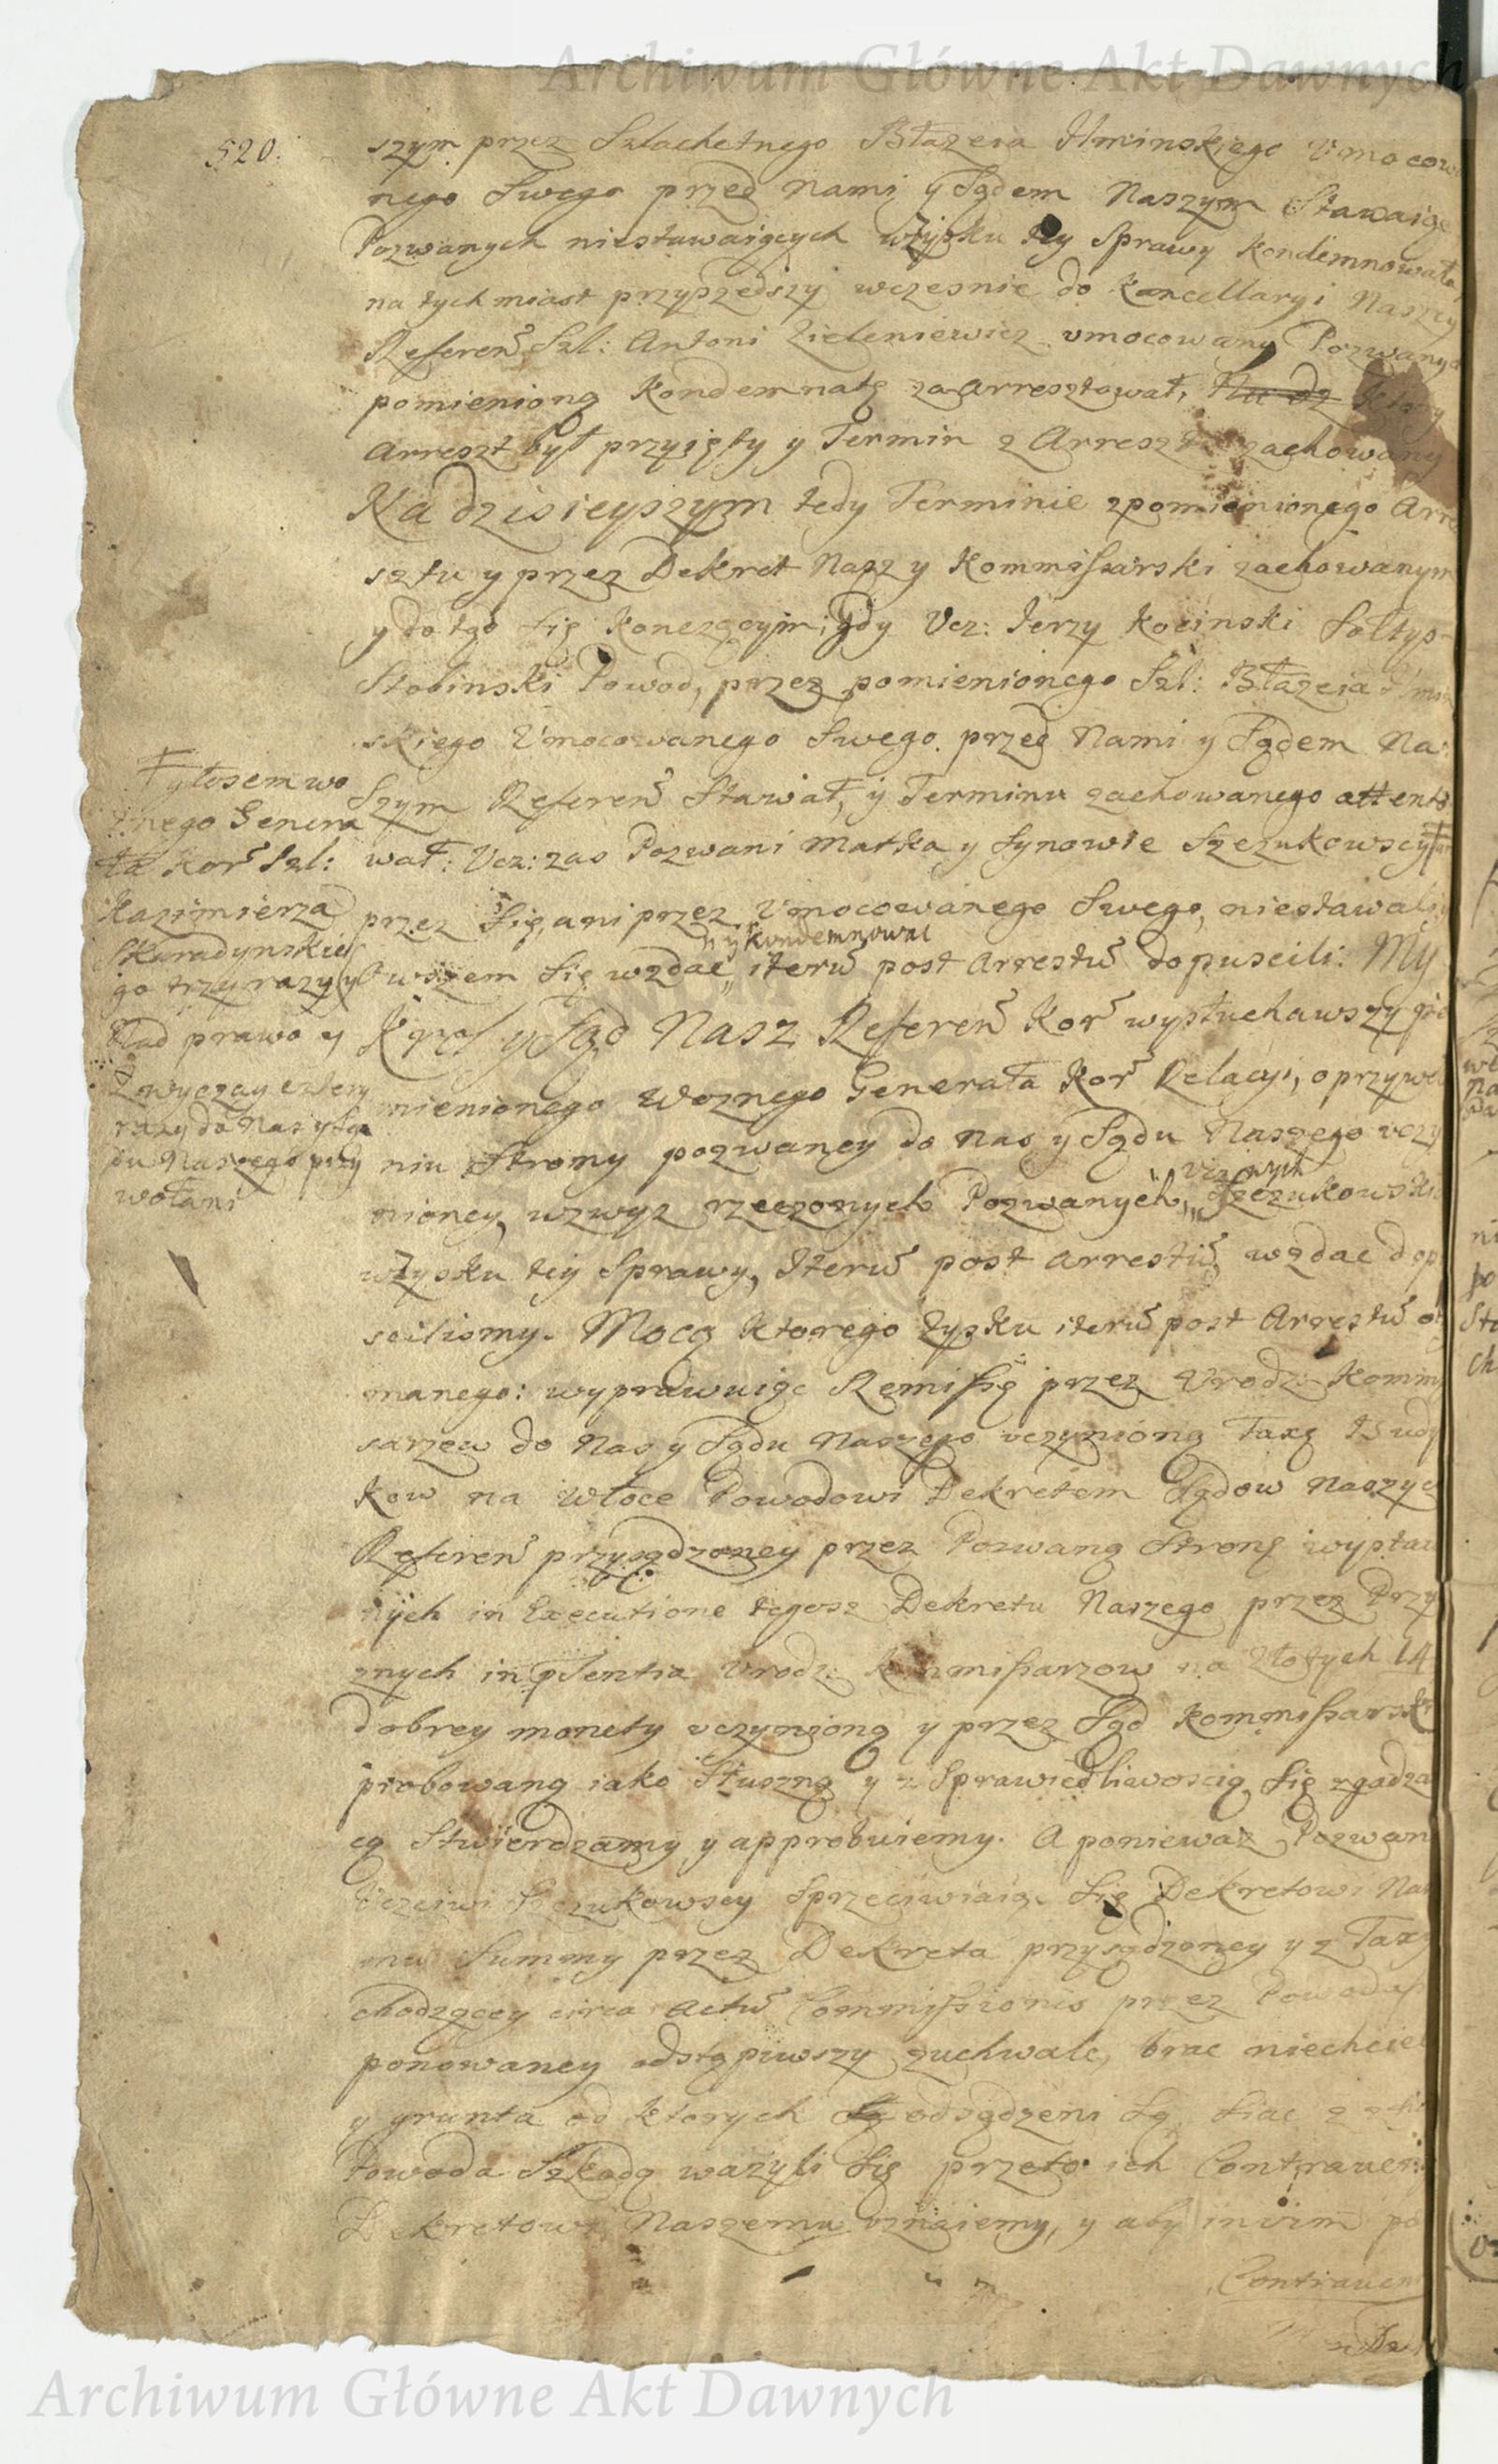 Archiwum Główne Akt Dawnych
520.
szym przez Szlachetnego Błazeia Ilminskiego Vmocow
nego Swego przed Nami y Sądem Naszym Stawaiąc
Pozwanych niestawaiących wZysku tey Sprawy Kondemnowała,
na tychmiast przyszedszy wczesnie do Kancellaryi Naszey
Referen Szl: Antoni Zieleniewicz vmocowany Pozwanych
pomienioną Kondemnatę zaarresztował, Ktory
Arreszt był przyięty y Termin z Arreszt zachowany
Na dzisieyszym tedy Terminie zpomienionego Arre
sztu y przez Dekret Nasz y Kommissarski zachowanym
y do tąd się Konczącym; gdy Vcz: Jerzy Kocinski Sołtys
Stobinski Powod, przez pomienionego Szl: Błazeia Ilmin
skiego Vmocowanego Swego przed Nami y Sądem Na:
Szym Referen Stawał, y Terminu zachowanego attento
wał: Vcz: zas Pozwani Matka y Synowie Szczukowscy
przez Się, ani przez Vmocowanego Swego, niestawali y
y Kondemnowac
owszem Się wzdac iteru post Arrestu dopuscili: My
Krol y Sąd Nasz Referen Kor wysłuchawszy po
mienionego Woznego Generała Kor Relacyi, o przywoła
niu Strony pozwaney do Nas y Sądu Naszego vczy
Vczciwych
nioney, wzwyz rzeczonych Pozwanych, Szczukowskich
wZysku tey Sprawy, Iteru post Arrestu, wzdac dopu
scilismy. Mocą Ktorego Zysku iteru post Arrestu ot
manego: wyprawuiąc Remissę przez Vrodz: Kommi
sarzew do Nas y Sądu Naszego vczynioną Taxę Budyn
Kow na Włoce Powodowi Dekretem Sądow Naszych
Referen przysądzoney przez Pozwaną Stronę wystaw
nych in Executione tegosz Dekretu Naszego przez Przy
znych in psentia Vrodz: Kommissarzow na Złotych 14
dobrey monety vczynioną y przez Sąd Kommissarski
probowaną iako Słuszną y z Sprawiedliwoscią Się zgadza
cą Stwierdzamy y approbuiemy. A poniewaz Pozwan
Vczciwi Szczukowscy Sprzeciwiaiąc Się Dekretowi Nas
mu Summy przez Dekreta przysądzoney y z Taxy
chodzącey circa Actu Commissionis przez Powoda
ponowaney odstąpiwszy zuchwale, brac niechciel
y grunta od Ktorych odsądzeni Są, Siac z
Powoda Szkodą wazyli Się przeto ich Contraven
Dekretowi Naszemu vznaiemy, y aby in vim po
Contraven
Ŧ głosem wo
znego Genera
ła Kor Szl:
Kazimierza
Skaradynskie
go trzy razy y
Nad prawo y
Zwyczay cztery
razy do Nas y Są
du Naszego przy
wołani
Archiwum Główne Akt Dawnych